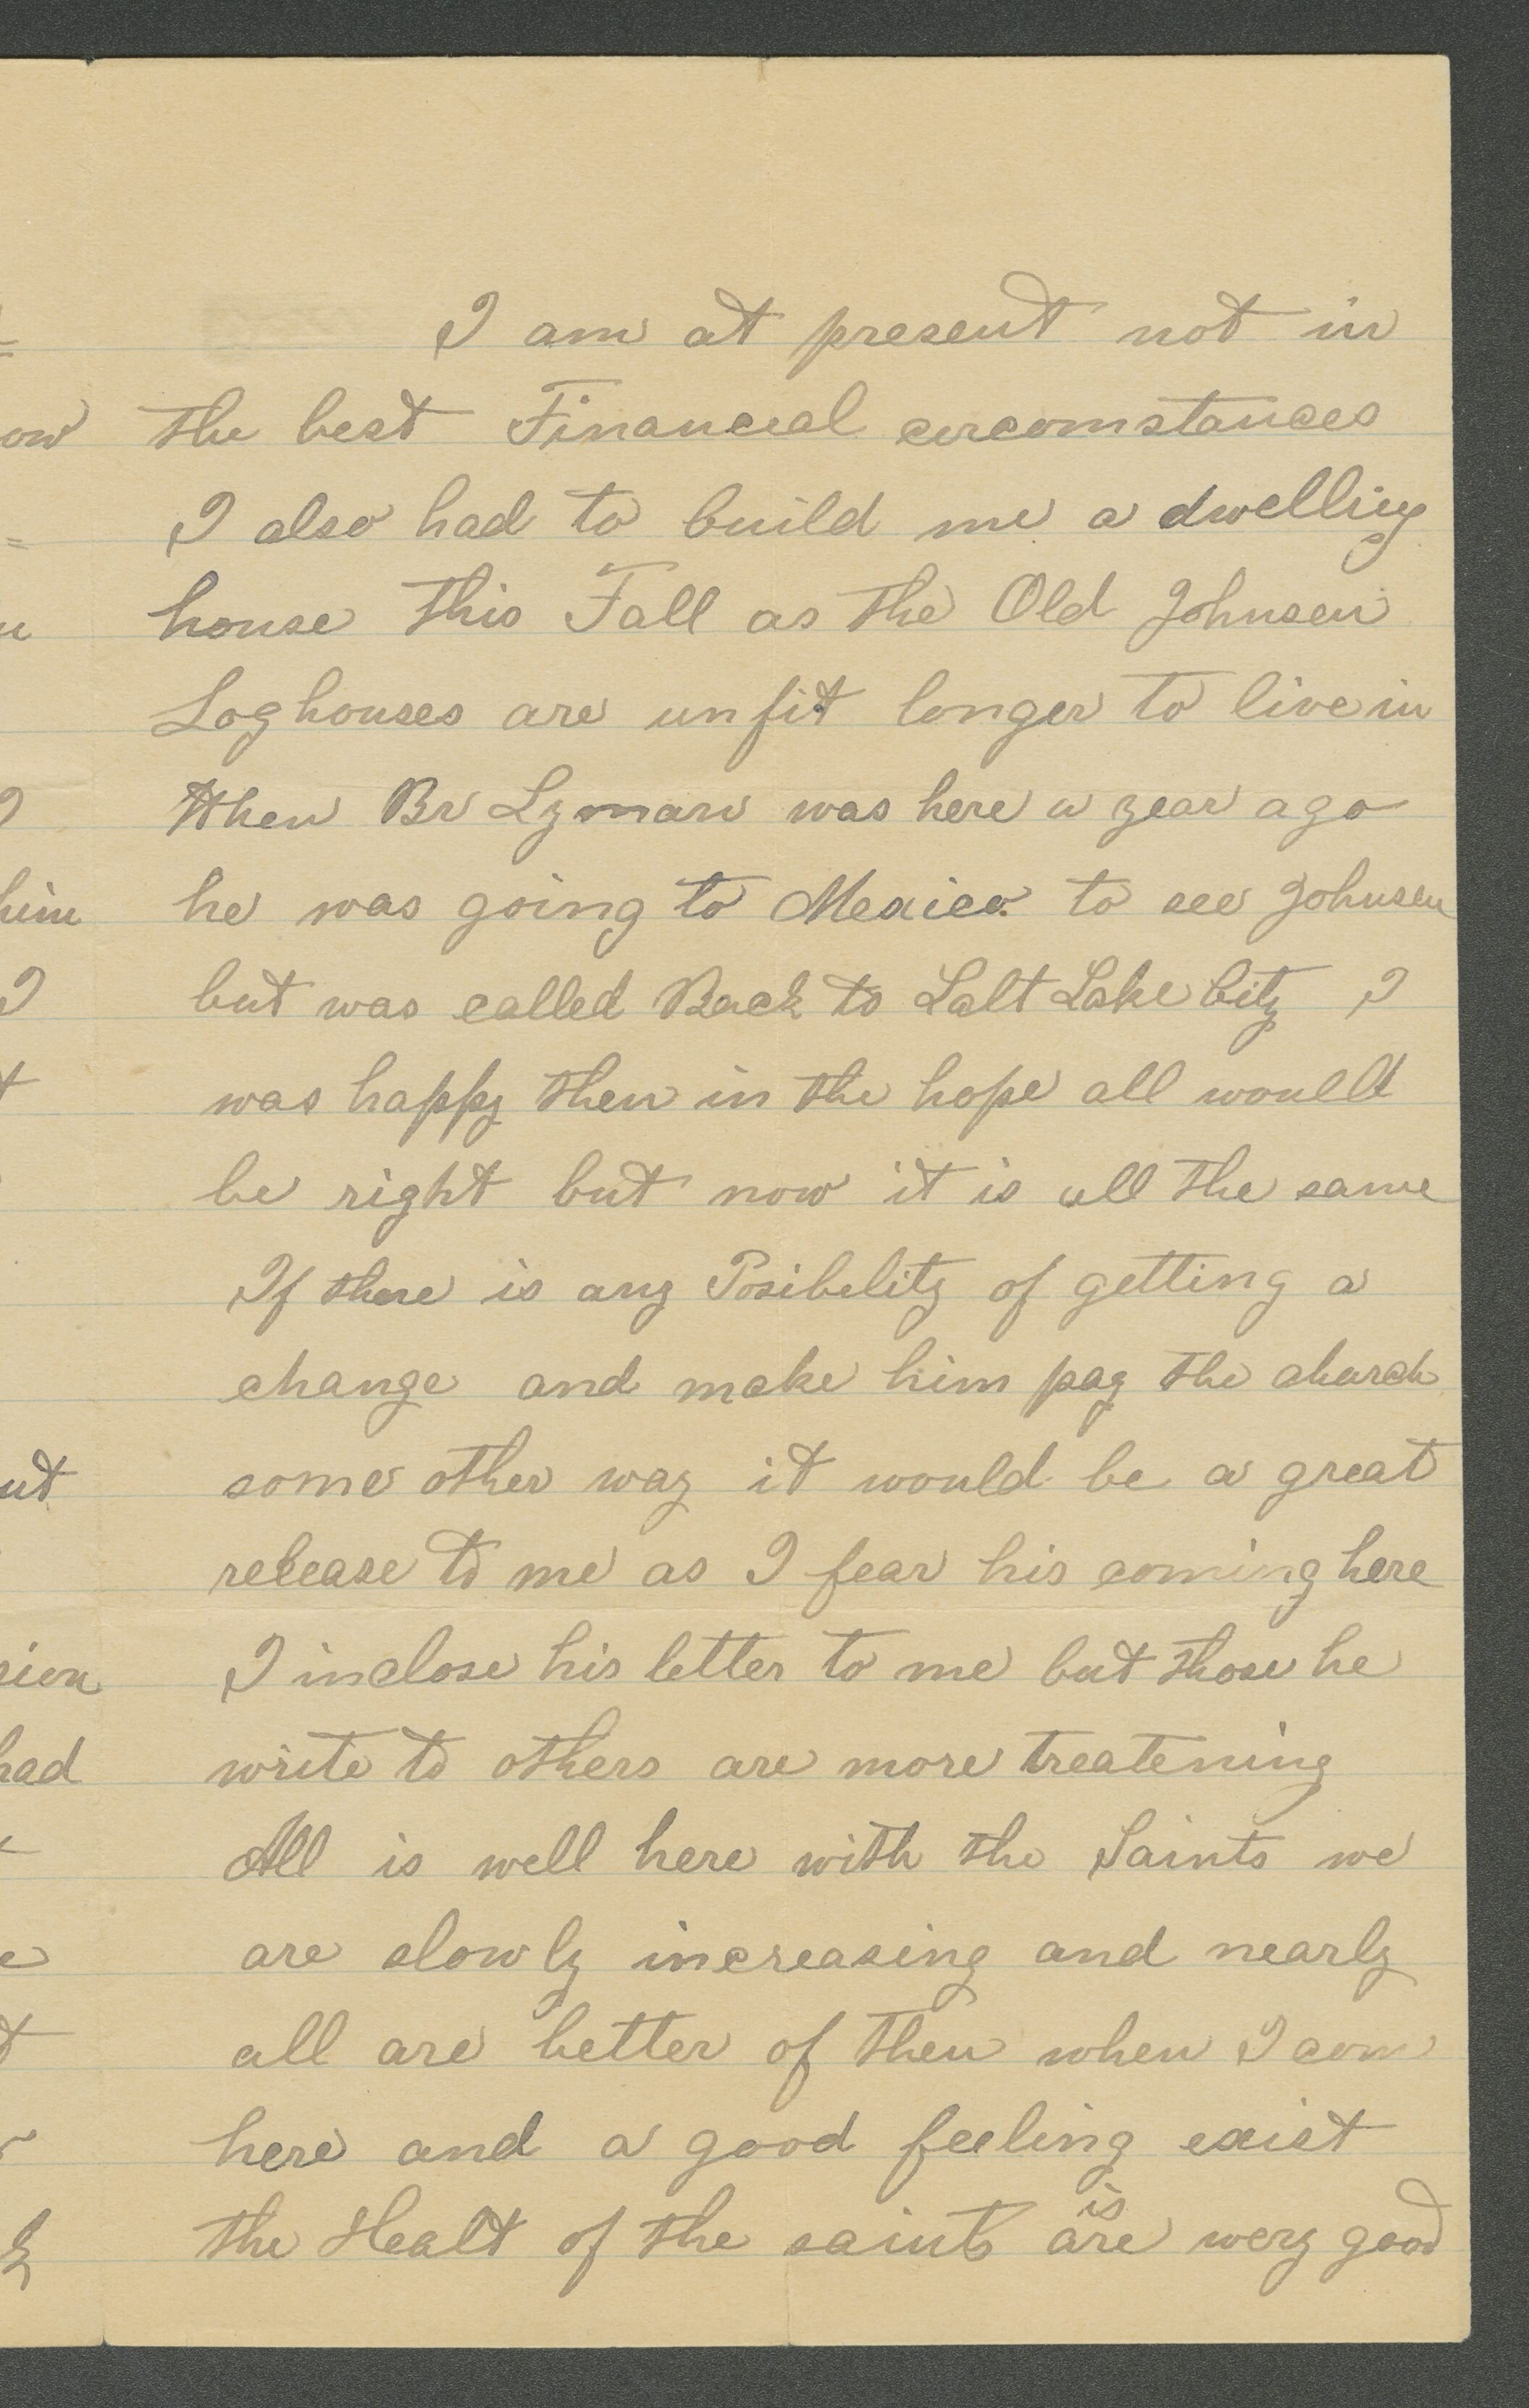 I am at present not in
the best Financeal cercomstances
I also had to build me a dwelling
house this Fall as the Old Johnsen
Loghouses are unfit longer to live in
When Br Lyman was here a year ago
he was going to Mexico to see Johnsen
but was called Back to Salt Lake City I
was happy then in the hope all would
be right but now it is all the same
If there is any Posibelity of getting a
change and make him pay the church
some other way it would be a great
release to me as I fear his coming here
I inclose his letter to me but those he
write to others are more treatening
All is well here with the Saints we
are slowly increasing and nearly
all are better of then when I com
here and a good feeling exist
the Healt of the saints is are wery good
ow
him
I
ut
sion
had